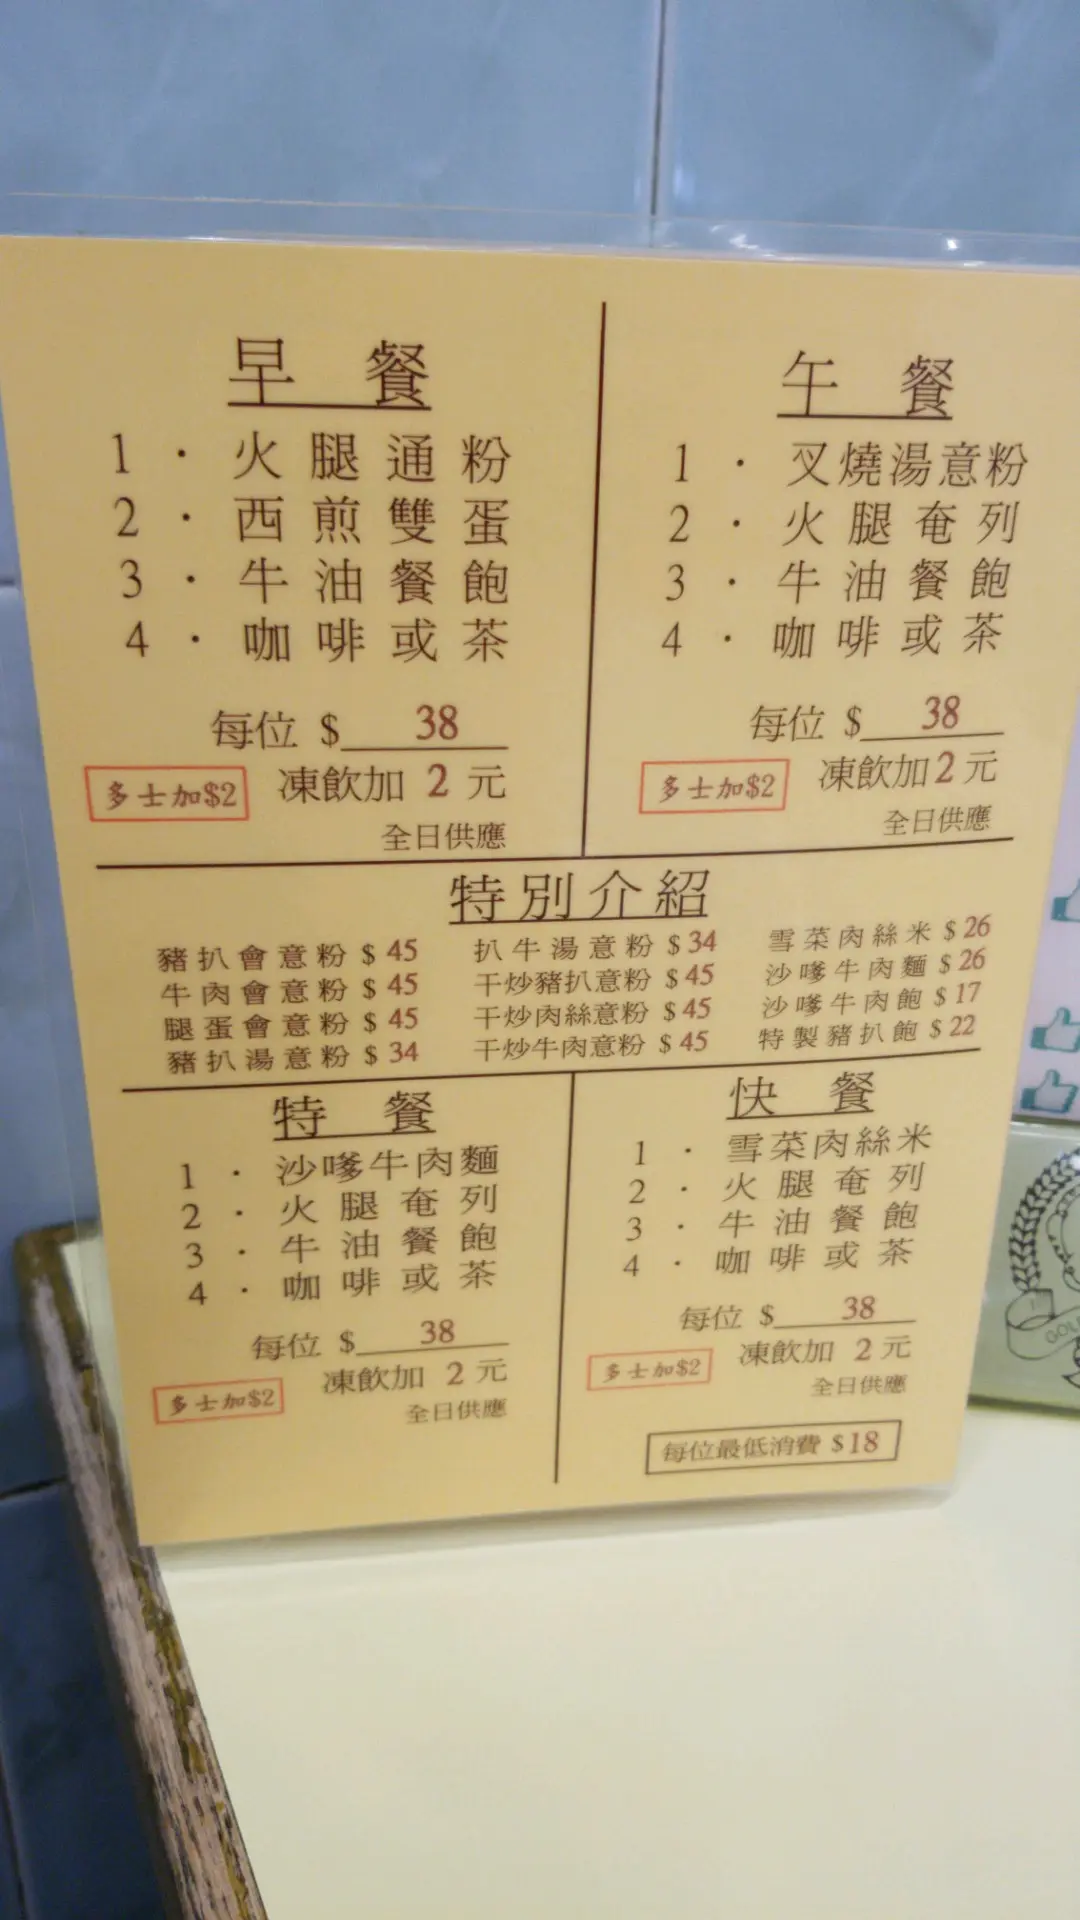 早餐
1．火腿通粉
2．西煎雙蛋
3．牛油餐飽
4．咖啡或茶
每位 $ 38
多士加$2 凍飲加 2 元
全日供應
午餐
1．叉燒湯意粉
2．火腿奄列
3．牛油餐飽
4．咖啡或茶
每位 $ 38
多士加$2 凍飲加 2 元
全日供應
特別介紹
豬扒會意粉 $ 45
牛肉會意粉 $ 45
腿蛋會意粉 $ 45
豬扒湯意粉 $ 34
扒牛湯意粉 $ 34
干炒豬扒意粉 $ 45
干炒肉絲意粉 $ 45
干炒牛肉意粉 $ 45
雪菜肉絲米 $ 26
沙嗲牛肉麵 $ 26
沙嗲牛肉飽 $ 17
特製豬扒飽 $ 22
特餐
1．沙嗲牛肉麵
2．火腿奄列
3．牛油餐飽
4．咖啡或茶
每位 $ 38
多士加$2 凍飲加 2 元
全日供應
快餐
1．雪菜肉絲米
2．火腿奄列
3．牛油餐飽
4．咖啡或茶
每位 $ 38
多士加$2 凍飲加 2 元
全日供應
每位最低消費 $18